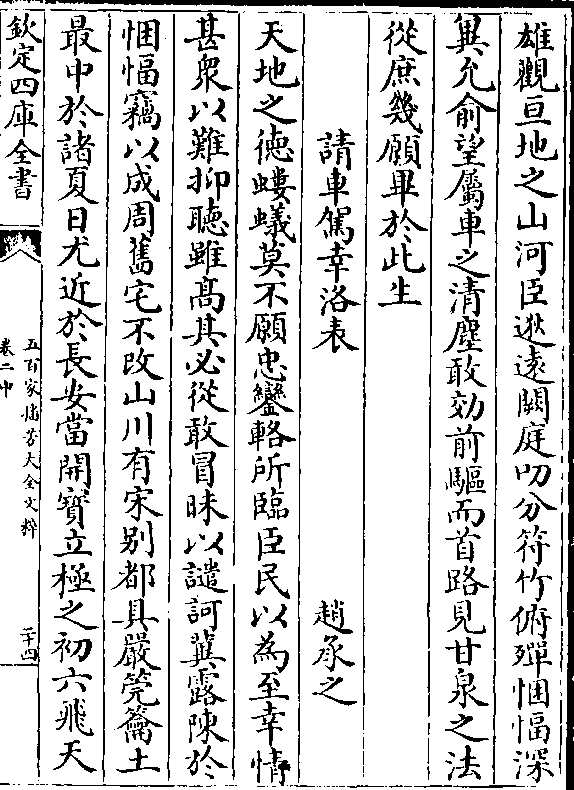 雄觀亘地之山河臣逖逺闕庭叨分符竹俯殫悃愊深
異允俞望屬車之清塵敢効前驅而首路見甘泉之法
從庶幾願畢於此生
請車駕幸洛表　趙承之
天地之徳螻蟻莫不願忠鑾輅所臨臣民以為至幸情
甚衆以難抑聽雖髙其必從敢冒昧以譴訶冀露陳於
悃愊竊以成周舊宅不改山川有宋别都具嚴筦籥土
最中於諸夏日尤近於長安當開寳立極之初六飛天
欽定四庫全書
五百家播芳大全文粹
卷二中
二十四